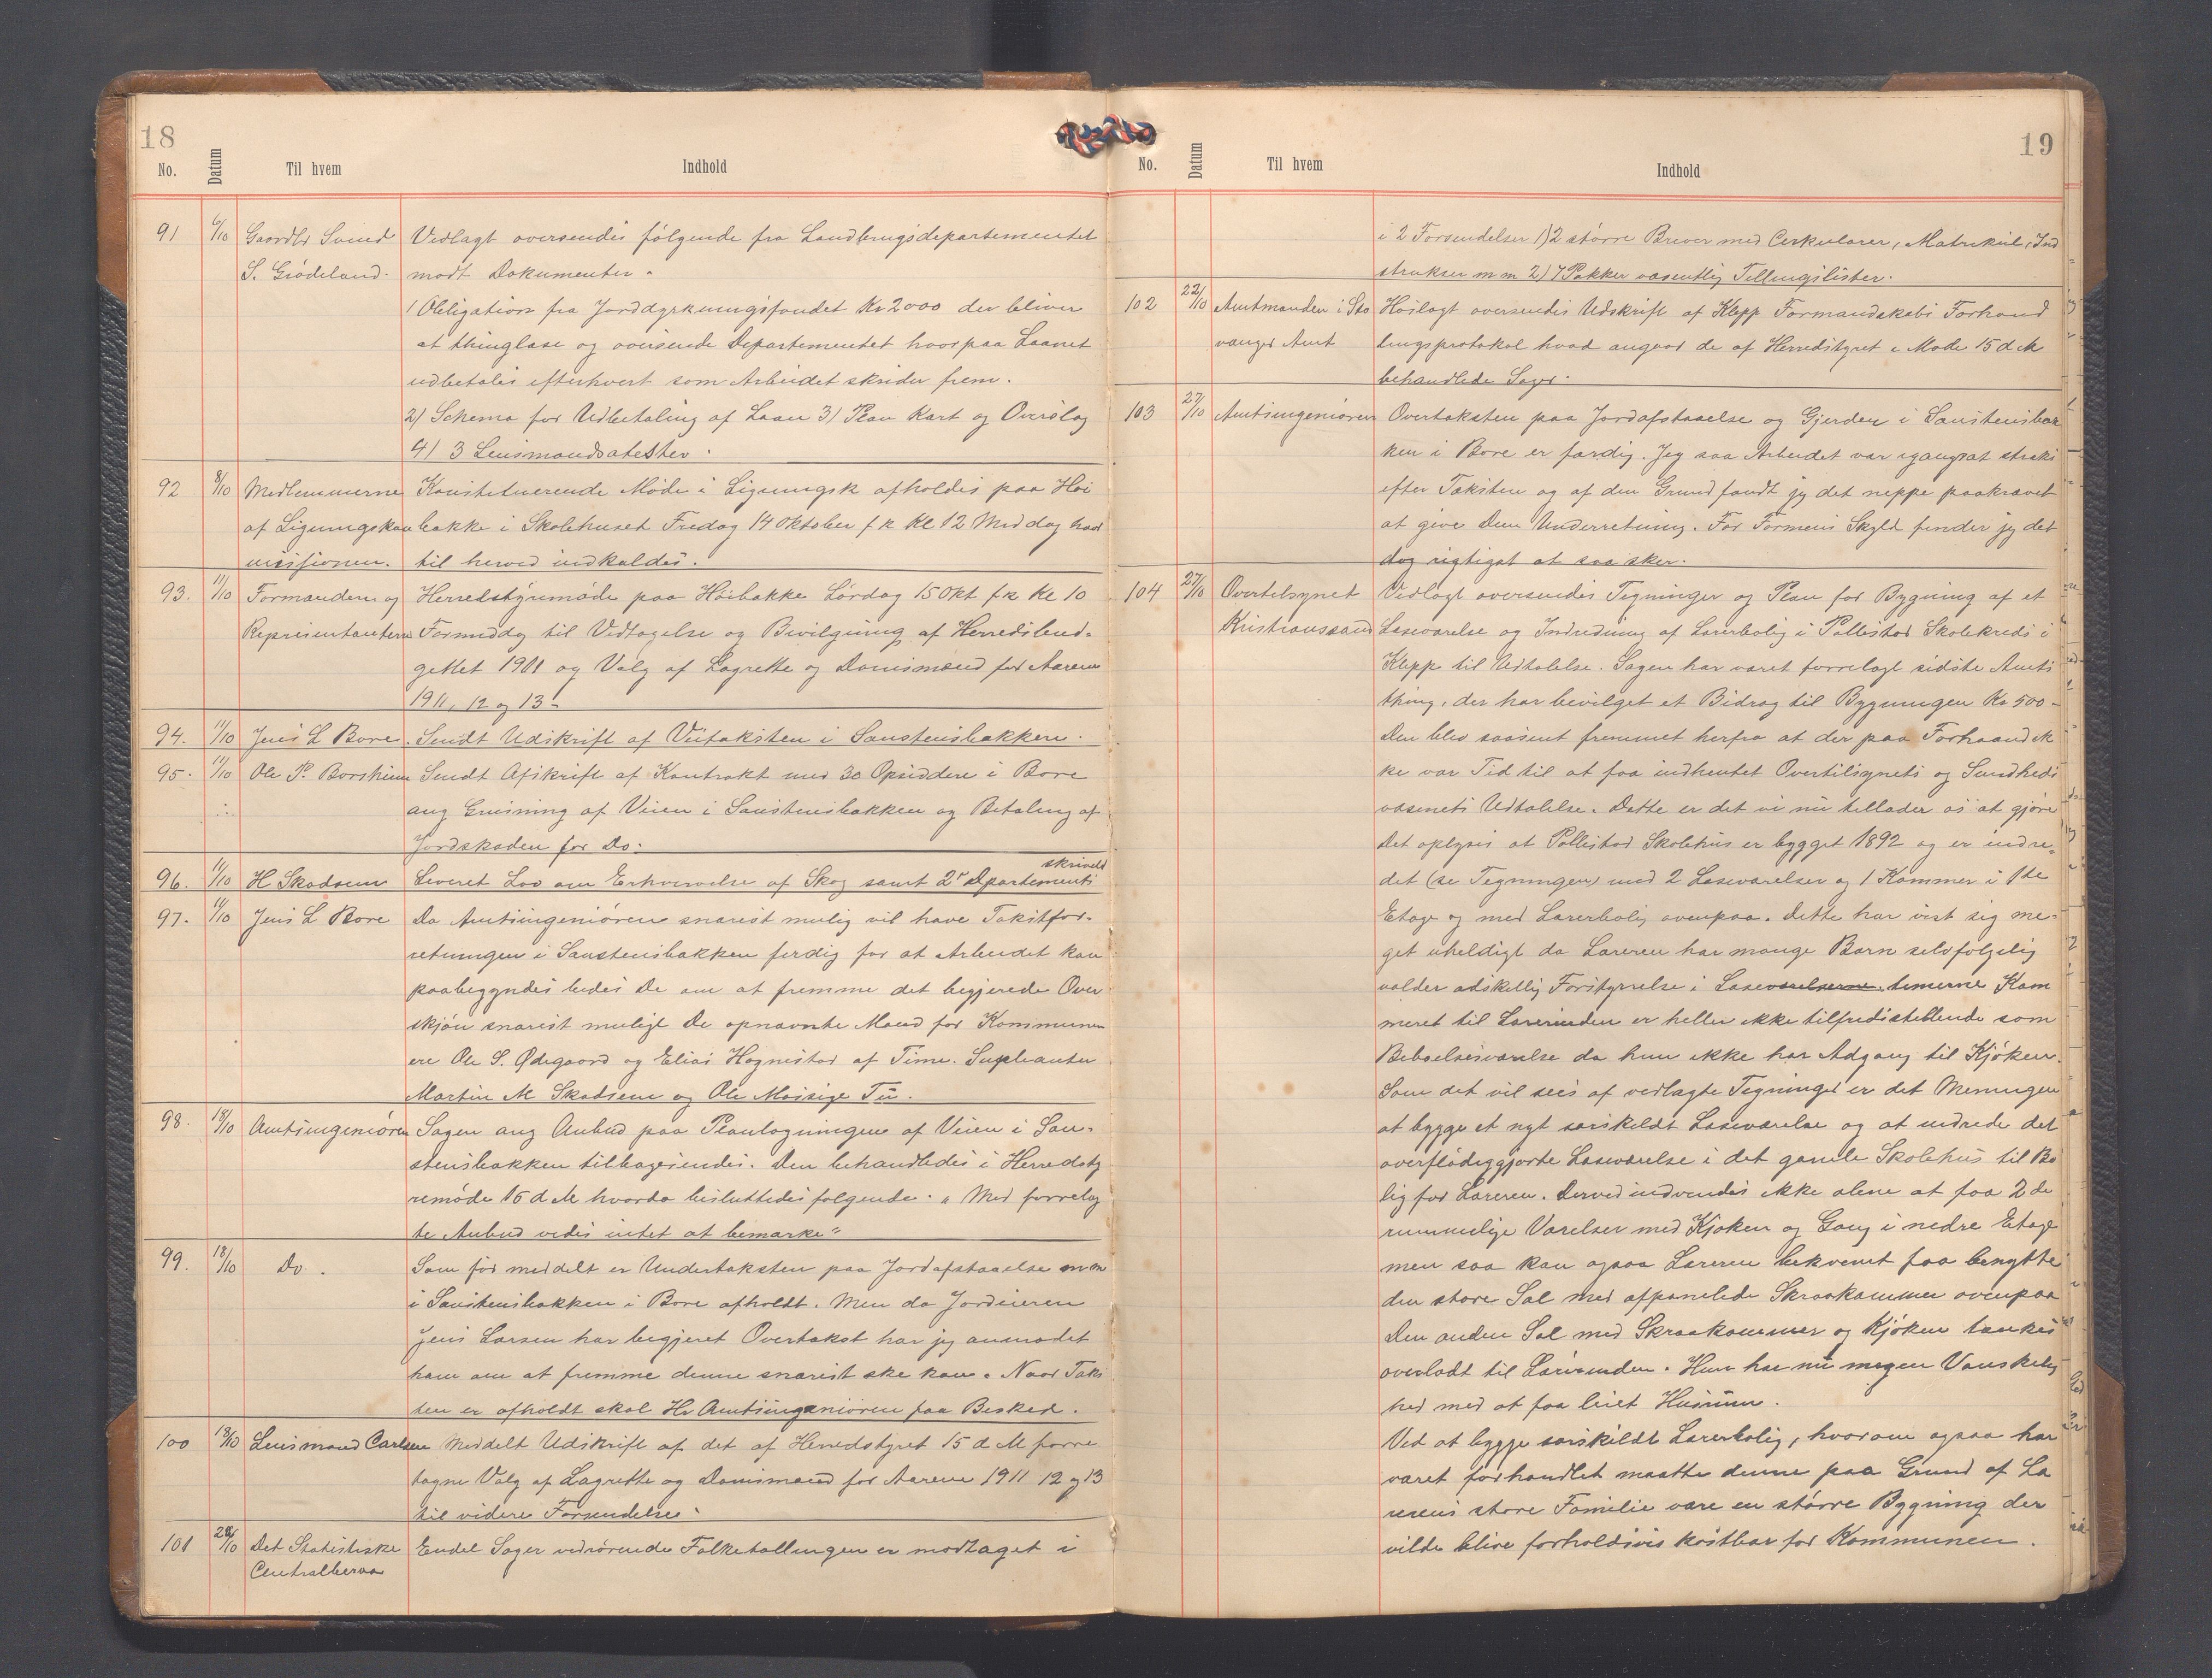 18
No. Datum Til hvem Indhold
91 6/10 Gaardbr Svend Vedlagt oversendes følgende fra Landbrugsdepartementet
S. Grødeland. modt Dokumenter.
1 Obligation fra Jorddyrkningsfondet Kr 2000 der bliver
at thinglæse og oversende Departementet hvorpaa Laanet
udbetales efterhvert som Arbeidet skrider frem.
2) Schema for Udbetaling af Laan 3) Plan Kart og Overslag
4) 3 Lensmandsatester.
92 8/10 Medlemmerne Konstituerende Møde i Ligningsk afholdes paa Høi
af Ligningskom bakke i Skolehuset Fredag 14 Oktober f k Kl 12 Middag hvor
missionen. til herved indkaldes.
93. 11/10 Formændene og Herredstyremøde paa Høibakke Lørdag 15 Okt f k Kl 10
Repræsentanterne Formiddg til Vedtagelse og Bevilgning af Herredsbud-
gettet 1911 og Valg af Lagrette og Domsmænd for Aarene
1911, 12 og 13.
94. 11/10 Jens L Bore. Sendt Udskrift af Veitaksten i Sanstensbakken.
95. 11/10 Ole P. Borsheim Sendt Afskrift af Kontrakt med 30 Opsiddere i Bore
ang Grusning af Veien i Sanstensbakken og Betaling af
Jordskaden for Do.
skrivelse
96. 11/10 H Skadsem Leveret Lov om Erhvervelse af Skog samt 2de Departements
97. 11/10 Jens L Bore Da Amtsingeniøren snarest mulig vil have Takstfor-
retningen i Sanstensbakken ferdig for at Arbeidet kan
paabegyndes bedes De om at fremme det begjerede Over
skjøn snarest muligt De opnævnte Mænd for Kommunen
ere Ole S. Ødegaard og Elias Hognestad af Time. Supleanter
Martin M Skadsem og Ole Moisige Tu.
98. 18/10 Amtsingeniøren Sagen ang Anbud paa Planlægningen af Veien i San-
stensbakken tilbagesendes. Den behandledes i Herredsty
remøde 15 d M hvorda besluttedes følgende. "Med forrelag
te Anbud vides intet at bemærke"
99. 18/10 Do. Som før meddelt er Undertaksten paa Jordafstaaelse m m
i Sanstensbakken i Bore afholdt. Men da Jordeieren
Jens Larsen har begjeret Overtakst har jeg anmodet
ham om at fremme denne snarest ske kan. Naar Taks
ten er afholdt skal Hr Amtsingeniøren faa Besked.
100 18/10 Lensmand Carlsen Meddelt Udskrift af det af Herredstyret 15 d M forre
tagne Valg af Lagrette og Domsmænd for Aarene 1911 12 og 13
til videre Forsendelse.
101 22/10 Det Statistiske Endel Sager vedrørende Folketællingen er modtaget i
Centralbureau
19
No. Datum Til hvem Indhold
i 2 Forsendelser 1) 2 større Brever med Cerkulærer, Matrikül, Ind
strukser m m 2) 7 Pakker væsentlig Tellingslister.
102 22/10 Amtmanden i Sta Hoslagt oversendes Udskrift af Klepp Formandskabs Forhand
vanger Amt lingsprotokol hvad angaar de af Herredstyret i Møde 15 d M
behandlede Sager.
103 27/10 Amtsingeniøren Overtaksten paa Jordafstaaelse og Gjerder i Sanstensbak
ken i Bore er færdig. Jeg saa Arbeidet var igangsat straks
efter Taksten og af den Grund fandt jg det neppe paakrævet
at give Dem Underretning. For Formens Skyld finder jg det
dog rigtigst at saa sker.
104 27/10 Overtilsynet Vedlagt oversendes Tegninger og Plan for Bygning af et
Kristianssand Læseværelse og Indredning af Lærerbolig i Pollestad Skolekreds i
Klepp til Udtalelse. Sagen har været forrelagt sidste Amts
thing, der har bevilget et Bidrag til Bygningen Kr 500-
Den blev saasent fremmet herfra at der paa Forhaand ik
ke var Tid til at faa indhentet Overtilsynets og Sundheds
væsenets Udtalelse. Dette er det vi nu tillader os at gjøre
Det oplyses at Pollestad Skolehus er bygget 1892 og er indre-
det (se Tegningen) med 2 Læseværelser og 1 Kammer i 1ste
Etage og med Lærerbolig ovenpaa. Dette har vist sig me-
get uheldigt da Læreren har mange Børn selvfølgelig
volder adskillig Forstyrrelse i Læseværelserne timerne Kam
meret til Lærerinden er heller ikke tilfredsstillende som
Beboelsesværelse da hun ikke har Adgang til Kjøken.
Som det vil sees af vedlagte Tegninger er det Meningen
at bygge et nyt særskildt Læseværelse og at indrede det
overflødiggjorte Læseværelse i det gamle Skolehus til Bo
lig for Læreren. Derved indvendes ikke alene at faa 2 de
rummelige Værelser med Kjøken og Gang i nedre Etage
men saa kan ogsaa Læreren bekvemt faa benytte
den store Sal med afpanelede Skraakammer ovenpaa
Den anden Sal med Skraakammer og Kjøken tænkes
overladt til Lærerinden. Hun har nu megen Vanskelig
hed med at faa leiet Husrum.
Ved at bygge særskildt Lærerbolig, hvorom ogsaa har
været forhandlet maatte denne paa Grund af Læ
rerens store Familie være en større Bygning der
vilde blive forholdsvis kostbar for Kommunen.